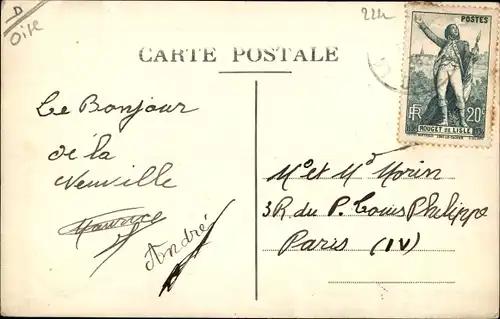 D
Oise
224
CARTE POSTALE
POSTES
RF
20c
ROUGET DE LISLE
Le Bonjour
de la
Neuville
Maurice
André
Mr et Md Morin
3 R. du P. Louis Philippe
Paris (IV)